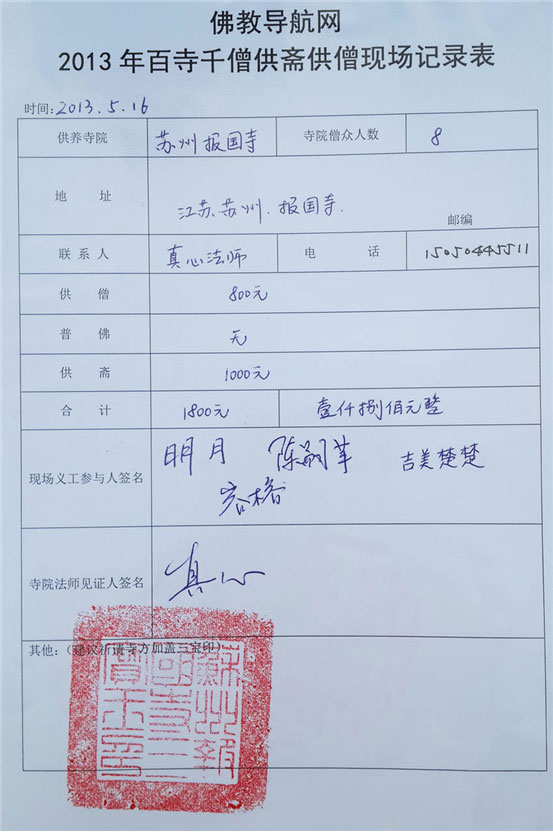 佛教导航网
2013年百寺千僧供斋供僧现场记录表
时间: 2013.5.16
供养寺院 苏州报国寺 寺院僧众人数 8
地 址 江苏.苏州.报国寺. 邮编
联系人 真心法师 电 话 15050445511
供 僧 800元
普 佛 无
供 斋 1000元
合 计 1800元 壹仟捌佰元整
现场义工参与人签名 明月 吉美楚楚
寺院法师见证人签名 真心
其他:(建议祈请寺方加盖三宝印)
蘇州報
國寺三
寶之印